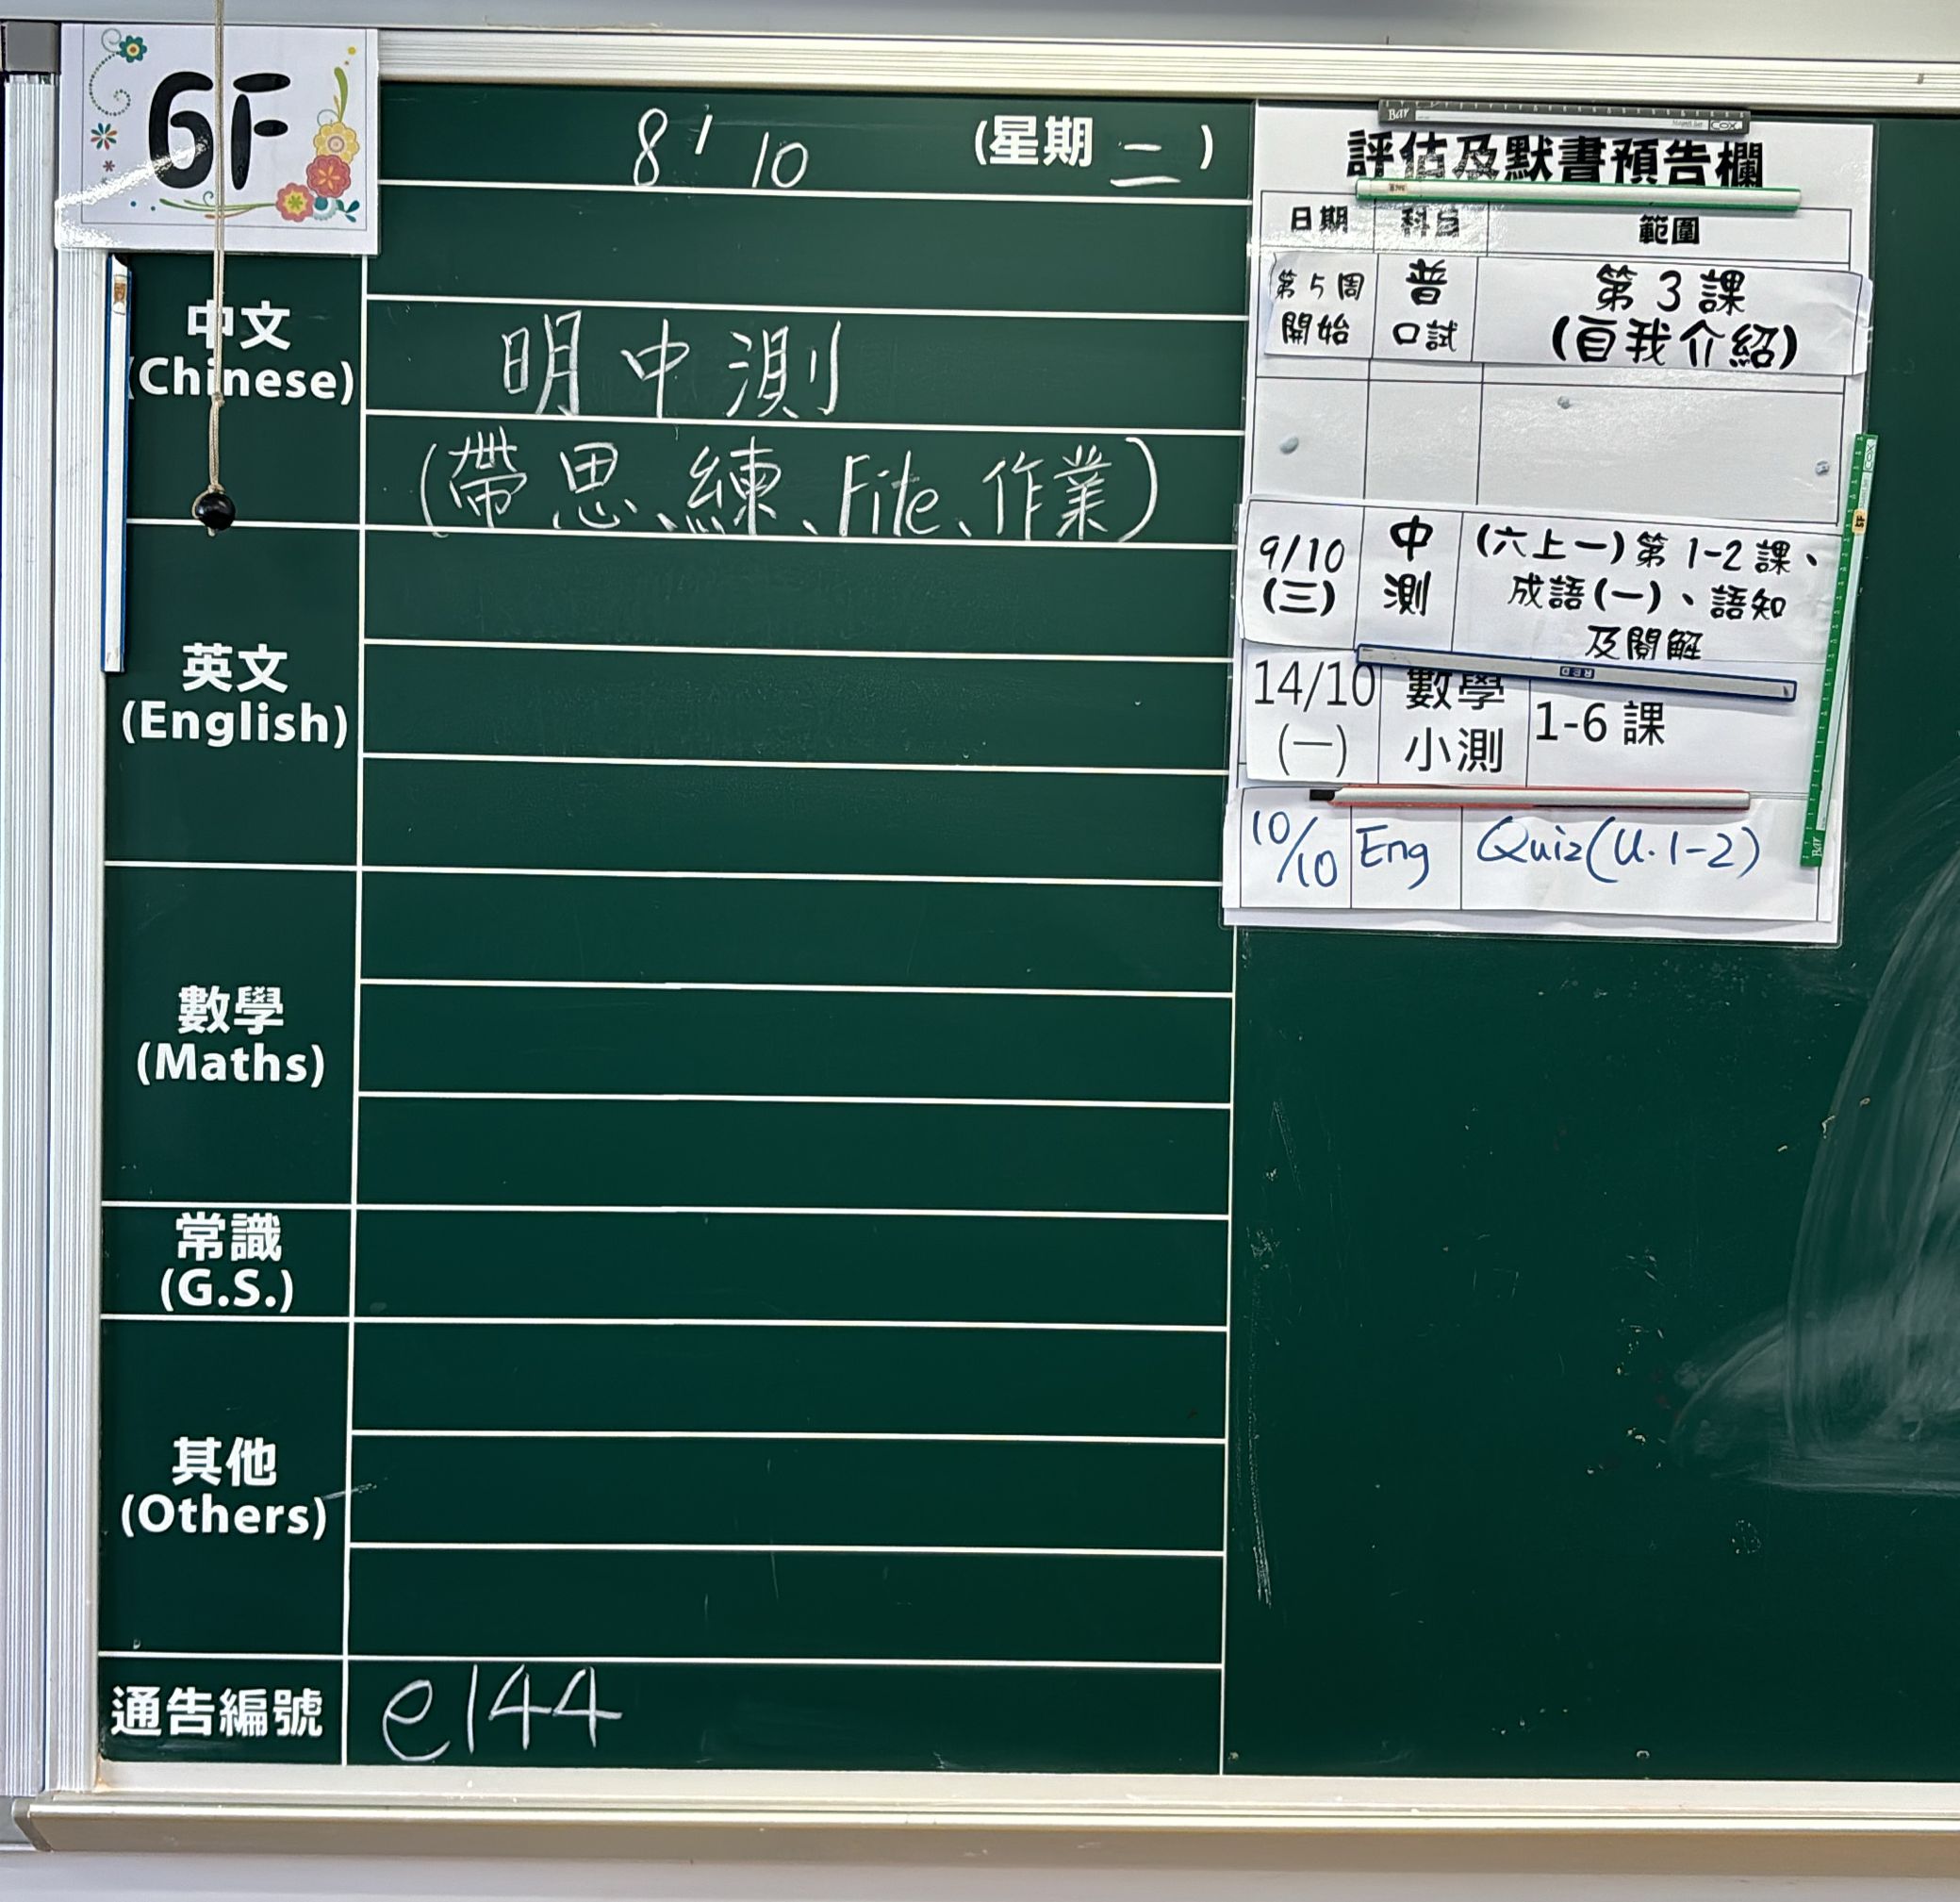 6F
8/10 (星期二)
中文
(Chinese)
明中測
(帶思、練、File、作業)
英文
(English)
數學
(Maths)
常識
(G.S.)
其他
(Others)
通告編號 e144
評估及默書預告欄
日期 科目 範圍
第5周
開始
普
口試
第3課
(自我介紹)
9/10
(三)
中
測
(六上一)第1-2課、
成語(一)、語知
及閱解
14/10
(一)
數學
小測
1-6課
10/10 Eng Quiz(U.1-2)